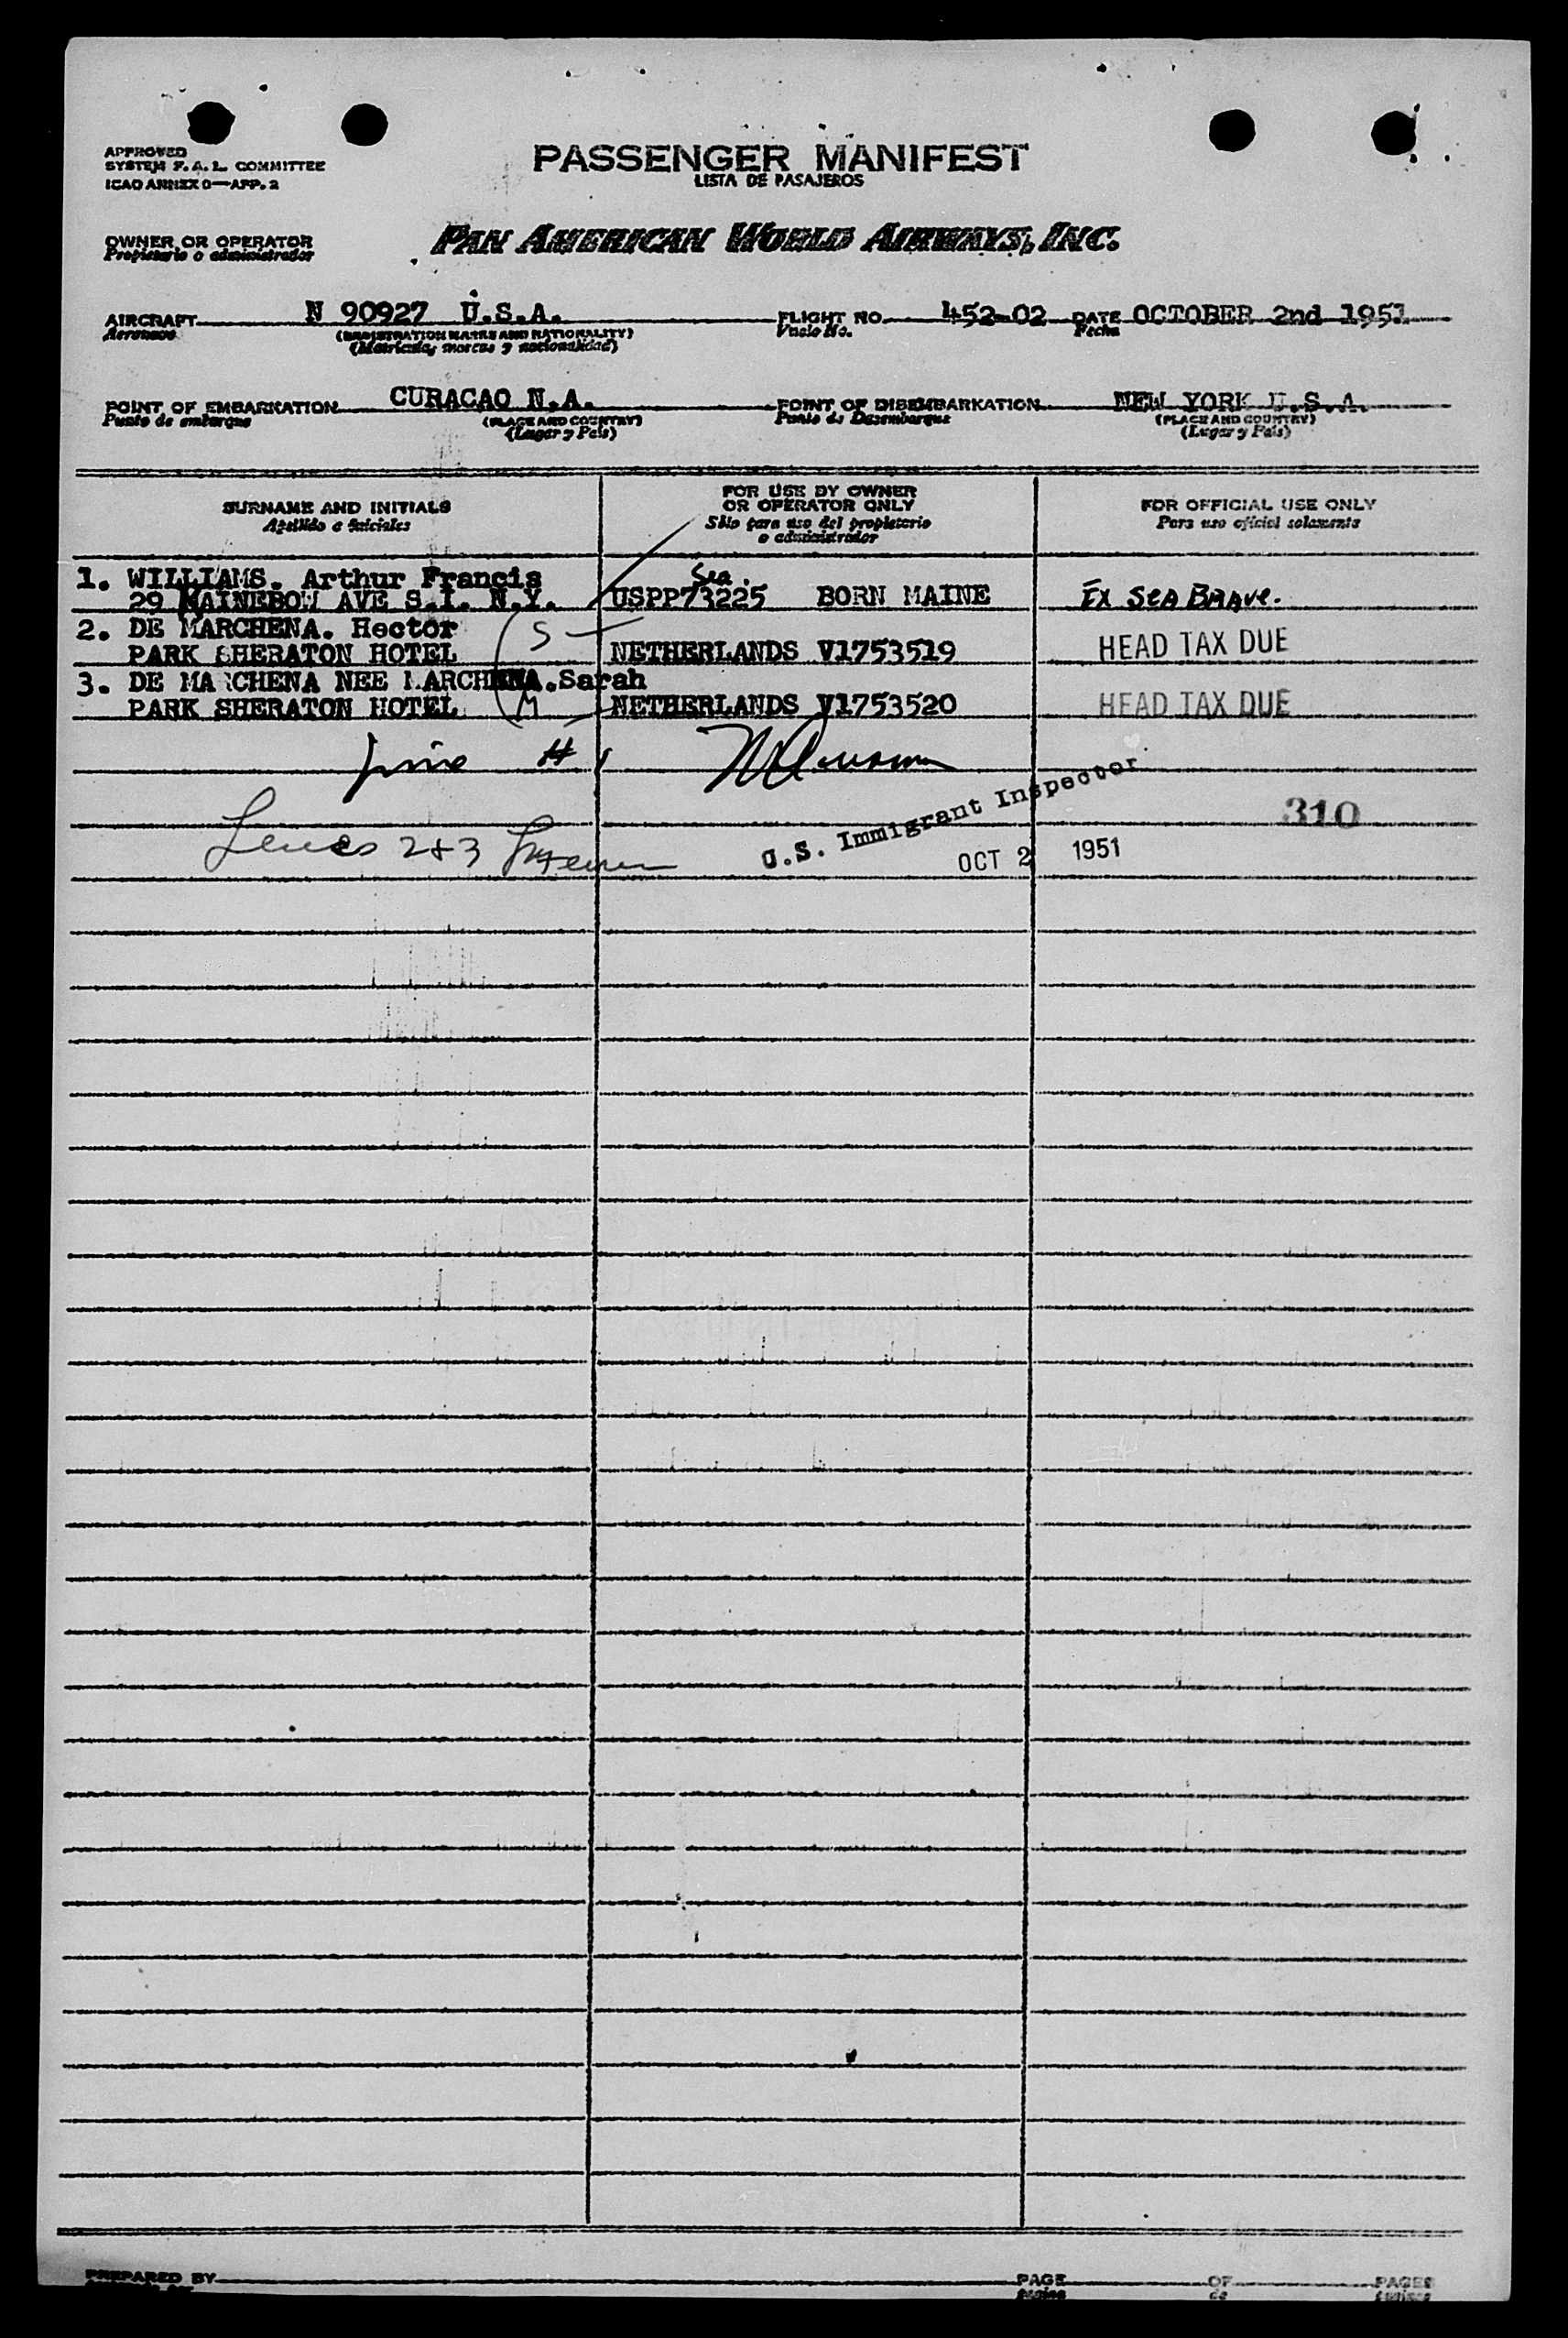 APPROVED
SYSTEM F.A.L. COMMITTEE
ICAO ANNEX 9—APP. 2
PASSENGER MANIFEST
LISTA DE PASAJEROS
OWNER OR OPERATOR
Propietario o administrador
PAN AMERICAN WORLD AIRWAYS, INC.
AIRCRAFT N 90927 U.S.A. FLIGHT NO. 452-02 DATE OCTOBER 2nd 1951
Aeronave (REGISTRATION MARKS AND NATIONALITY) Vuelo No. Fecha
(Matrícula, marcas y nacionalidad)
POINT OF EMBARKATION CURACAO N.A. POINT OF DISEMBARKATION NEW YORK U.S.A.
Punto de embarque (PLACE AND COUNTRY) Punto de Desembarque (PLACE AND COUNTRY)
(Lugar y País) (Lugar y País)
SURNAME AND INITIALS
Apellido e iniciales
FOR USE BY OWNER
OR OPERATOR ONLY
Sólo para uso del propietario
o administrador
FOR OFFICIAL USE ONLY
Para uso oficial solamente
1. WILLIAMS. Arthur Francis Sea.
29 MAINEBOW AVE S.I. N.Y. USPP73225 BORN MAINE EX SEA BRAVE.
2. DE MARCHENA. Hector S
PARK SHERATON HOTEL NETHERLANDS V1753519 HEAD TAX DUE
3. DE MARCHENA NEE MARCHENA.Sarah
PARK SHERATON HOTEL M NETHERLANDS V1753520 HEAD TAX DUE
Line # 1
310
Lines 2+3
U.S. Immigrant Inspector
OCT 2 1951
PREPARED BY PAGE OF PAGES
de